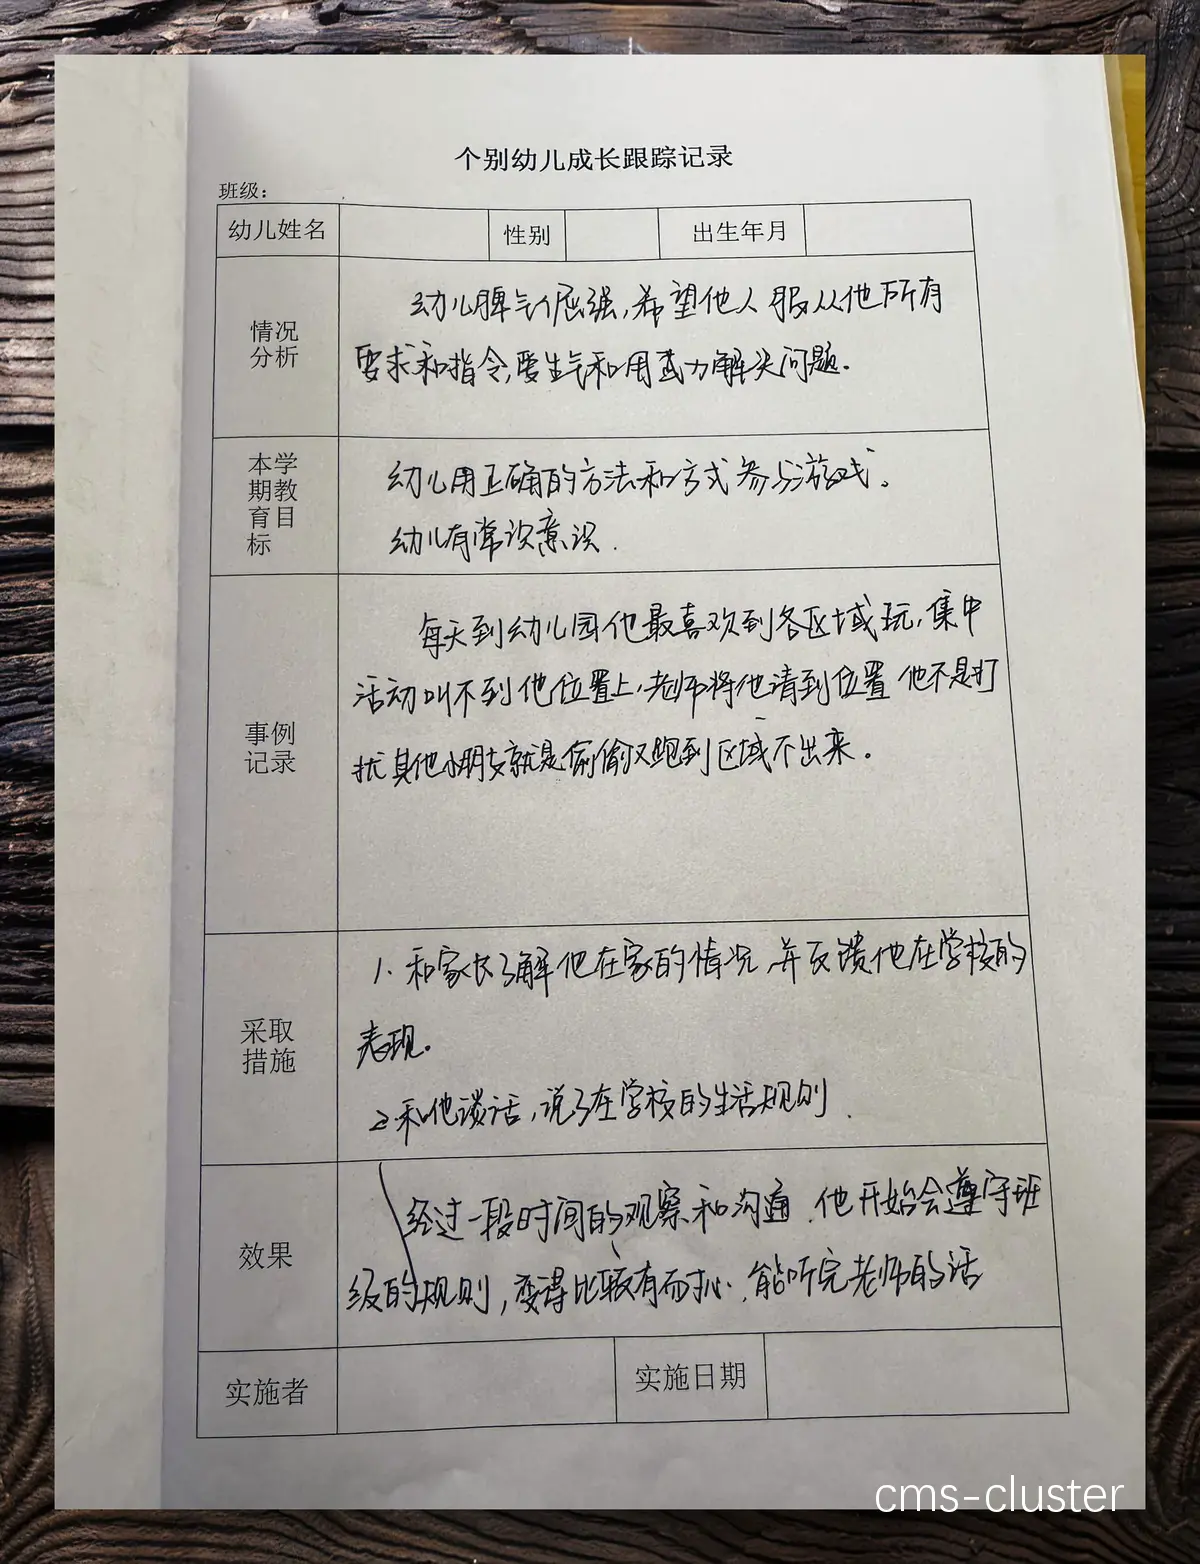 个别幼儿成长跟踪记录
班级：
幼儿姓名 性别 出生年月
情况
分析
幼儿脾气倔强,希望他人服从他所有
要求和指令,要生气和用武力解决问题.
本学
期教
育目
标
幼儿用正确的方法和方式参与游戏。
幼儿有常识意识.
事例
记录
每天到幼儿园他最喜欢到各区域玩,集中
活动叫不到他位置上,老师将他请到位置他不是打
扰其他小朋友就是偷偷又跑到区域不出来。
采取
措施
1.和家长了解他在家的情况,并反馈他在学校的
表现.
2.和他谈话,说了在学校的生活规则.
效果
经过一段时间的观察和沟通,他开始会遵守班
级的规则,变得比较有耐心,能听完老师的话
实施者 实施日期
cms-cluster